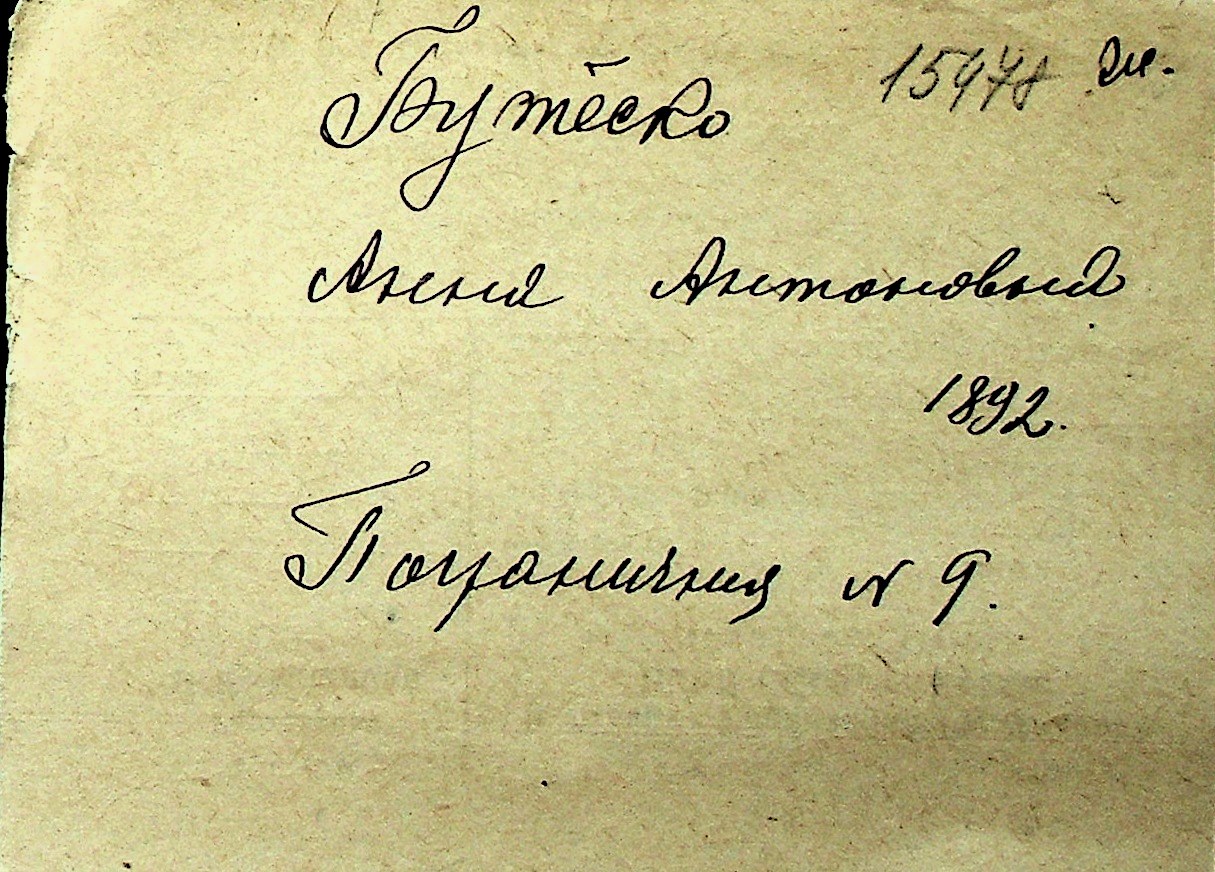 Бутёско 15978 эи.
Анна Антоновна
1892.
Пограничная N 9.